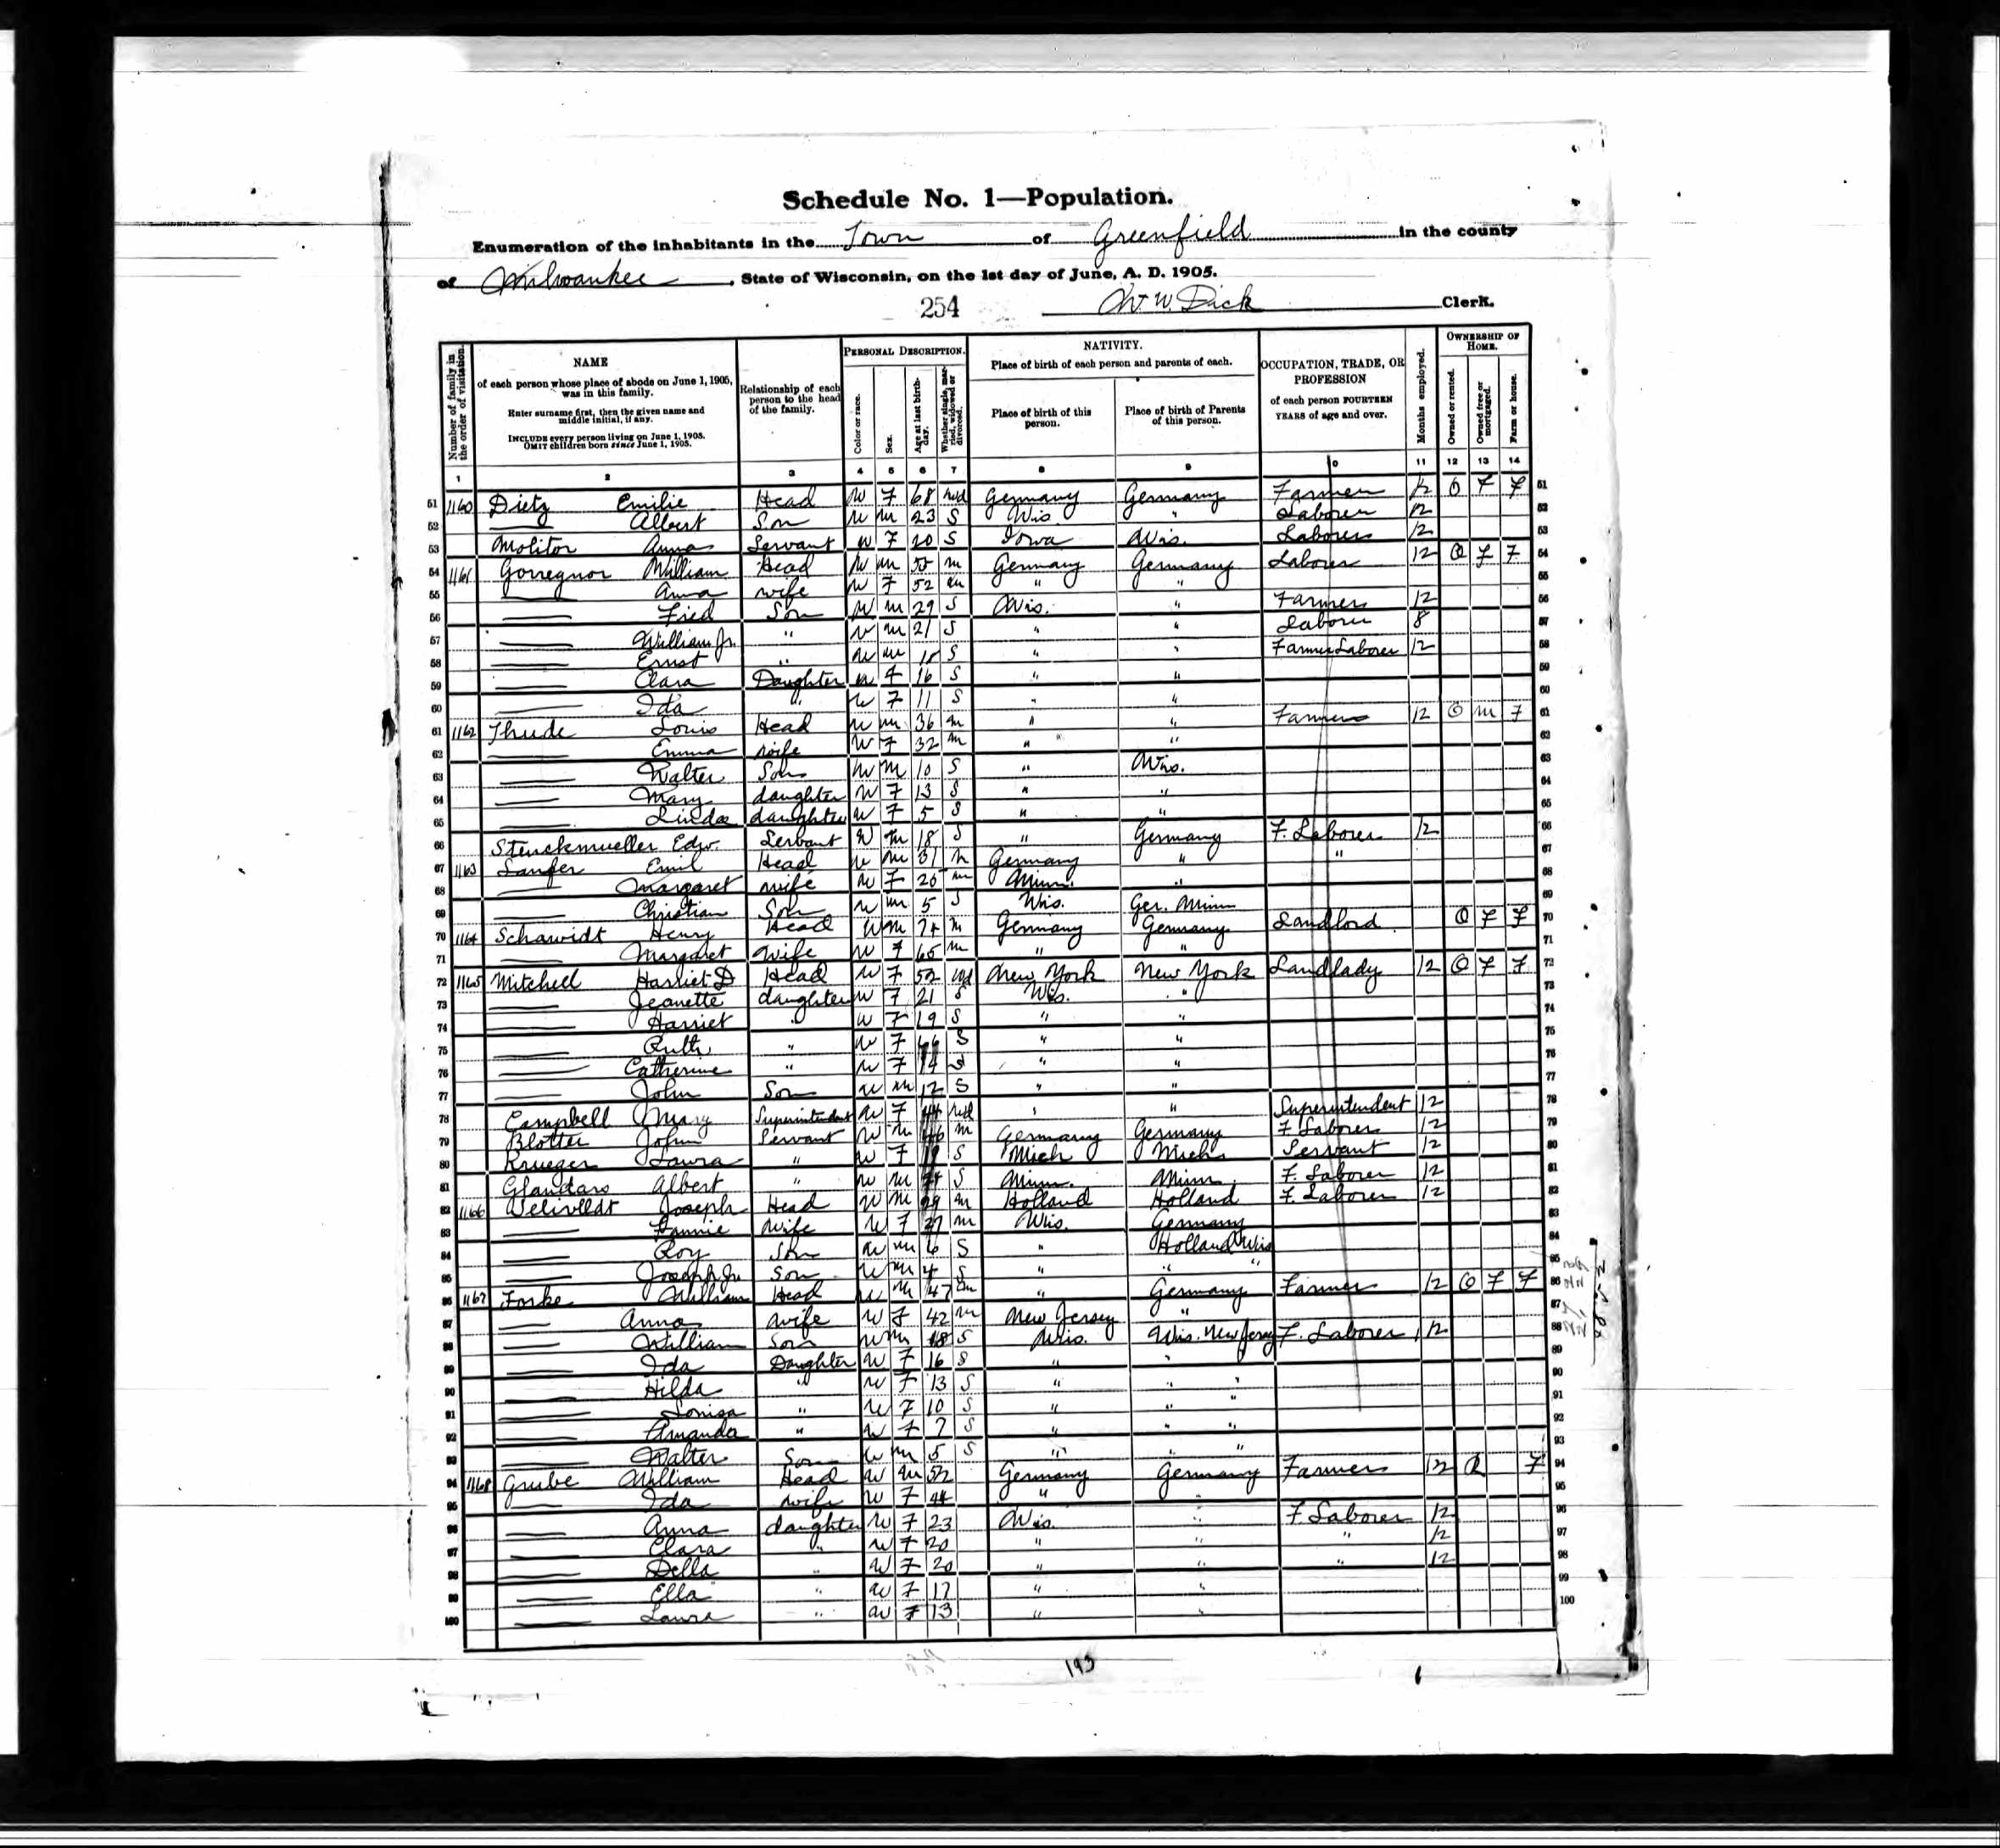 Schedule No. 1—Population.
Enumeration of the inhabitants in the Town of Greenfield in the county
of Milwaukee, State of Wisconsin, on the 1st day of June, A. D. 1905.
254 W. W. Dick Clerk.
Number of family in the order of visitation.
NAME
of each person whose place of abode on June 1, 1905, was in this family.
Enter surname first, then the given name and middle initial, if any.
INCLUDE every person living on June 1, 1905.
OMIT children born since June 1, 1905.
Relationship of each person to the head of the family.
PERSONAL DESCRIPTION.
Color or race.
Sex.
Age at last birthday.
Whether single, married, widowed or divorced.
NATIVITY.
Place of birth of each person and parents of each.
Place of birth of this person.
Place of birth of Parents of this person.
OCCUPATION, TRADE, OR PROFESSION
of each person FOURTEEN YEARS of age and over.
Months employed.
OWNERSHIP OF HOME.
Owned or rented.
Owned free or mortgaged.
Farm or house.
1 2 3 4 5 6 7 8 9 10 11 12 13 14
51 1160 Dietz Emilie Head W F 68 Wd Germany Germany Farmer 12 O F F 51
52 Albert Son W M 23 S Wis " Laborer 12 52
53 Molitor Anna Servant W F 20 S Iowa Wis. Laborer 12 53
54 1161 William Head W M 55 M Germany Germany Laborer 12 O F F 54
55 Anna wife W F 52 M " " 55
56 Fred Son W M 29 S Wis. " Farmer 12 56
57 William Jr. " W M 21 S " " Laborer 8 57
58 Ernst " W M S " " Farmer Laborer 12 58
59 Clara Daughter W F 16 S " " 59
60 Ida " W F 11 S " " 60
61 1162 Thude Louis Head W M 36 M " " Farmer 12 O M F 61
62 Emma wife W F 32 M " " 62
63 Walter Son W M 10 S " Wis. 63
64 Mary daughter W F 13 S " " 64
65 Linda daughter W F 5 S " " 65
66 Stenckmueller Edw. Servant W M 18 S " Germany F. Laborer 12 66
67 1163 Emil Head W M 31 M Germany " " 67
68 Margaret wife W F M Minn. " 68
69 Christian Son W M 5 S Wis. Ger. Minn 69
70 1164 Schawidt Henry Head W M 74 M Germany Germany Landlord O F F 70
71 Margaret Wife W F 65 M " " 71
72 1165 Mitchell Harriet D Head W F 52 Wd New York New York Landlady 12 O F F 72
73 Jeanette daughter W F 21 S Wis. " 73
74 Harriet " W F 19 S " " 74
75 Ruth " W F S " " 75
76 Catherine " W F 14 S " " 76
77 John Son W M 12 S " " 77
78 Campbell Mary Superintendent W F 44 Wd " " Superintendent 12 78
79 Blotter John Servant W M 46 M Germany Germany F Laborer 12 79
80 Krueger Laura " W F 19 S Mich Mich. Servant 12 80
81 Albert " W M S Minn. Minn. F. Laborer 12 81
82 1166 Joseph Head W M 29 M Holland Holland F. Laborer 12 82
83 Fannie Wife W F 27 M Wis. Germany 83
84 Roy Son W M 6 S " Holland Wis 84
85 Joseph Jr. Son W M 4 S " " " 85
86 1167 Forke William Head W M 47 M " Germany Farmer 12 O F F 86
87 Anna wife W F 42 M New Jersey " 87
88 William Son W M 18 S Wis. Wis. New Jersey F. Laborer 12 88
89 Ida Daughter W F 16 S " " 89
90 Hilda " W F 13 S " " " 90
91 Louisa " W F 10 S " " " 91
92 Amanda " W F 7 S " " " 92
93 Walter Son W M 5 S " " " 93
94 1168 Grube William Head W M 52 Germany Germany Farmer 12 R F 94
95 Ida wife W F 44 " " 95
96 Anna daughter W F 23 Wis. " F. Laborer 12 96
97 Clara " W F 20 " " " 12 97
98 Della " W F 20 " " " 12 98
99 Ella " W F 17 " " 99
100 Laura " W F 13 " " 100
193